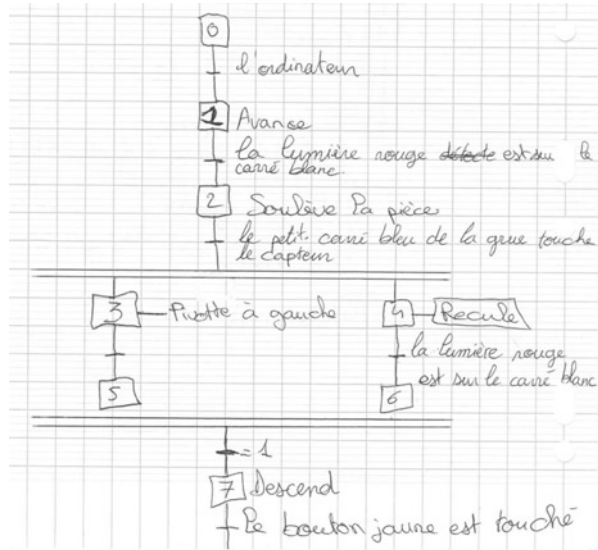 0
l'ordinateur
1 Avance
la lumière rouge détecte est sur le
carré blanc.
2 Soulève la pièce
le petit carré bleu de la grue touche
le capteur
3 Pivotte à gauche
4 Recule
la lumière rouge
est sur le carré blanc
5
6
= 1
7 Descend
le bouton jaune est touché